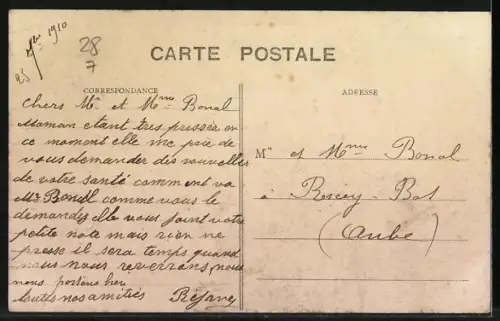 25 7bre 1910
28
7
CARTE POSTALE
CORRESPONDANCE
ADRESSE
Chers Mr et Mme Bonal
Maman etant tres pressée en
ce moment elle me prie de
vous demander des nouvelles
de votre santé comment va
Mr Bonal comme vous le
demandez elle vous joint votre
petite note mais rien ne
presse il sera temps quand
nous nous reverrons, nous
nous portons bien
toutes nos amitiés Réjane
Mr et Mme Bonal
à Ricey-Bas
(Aube)